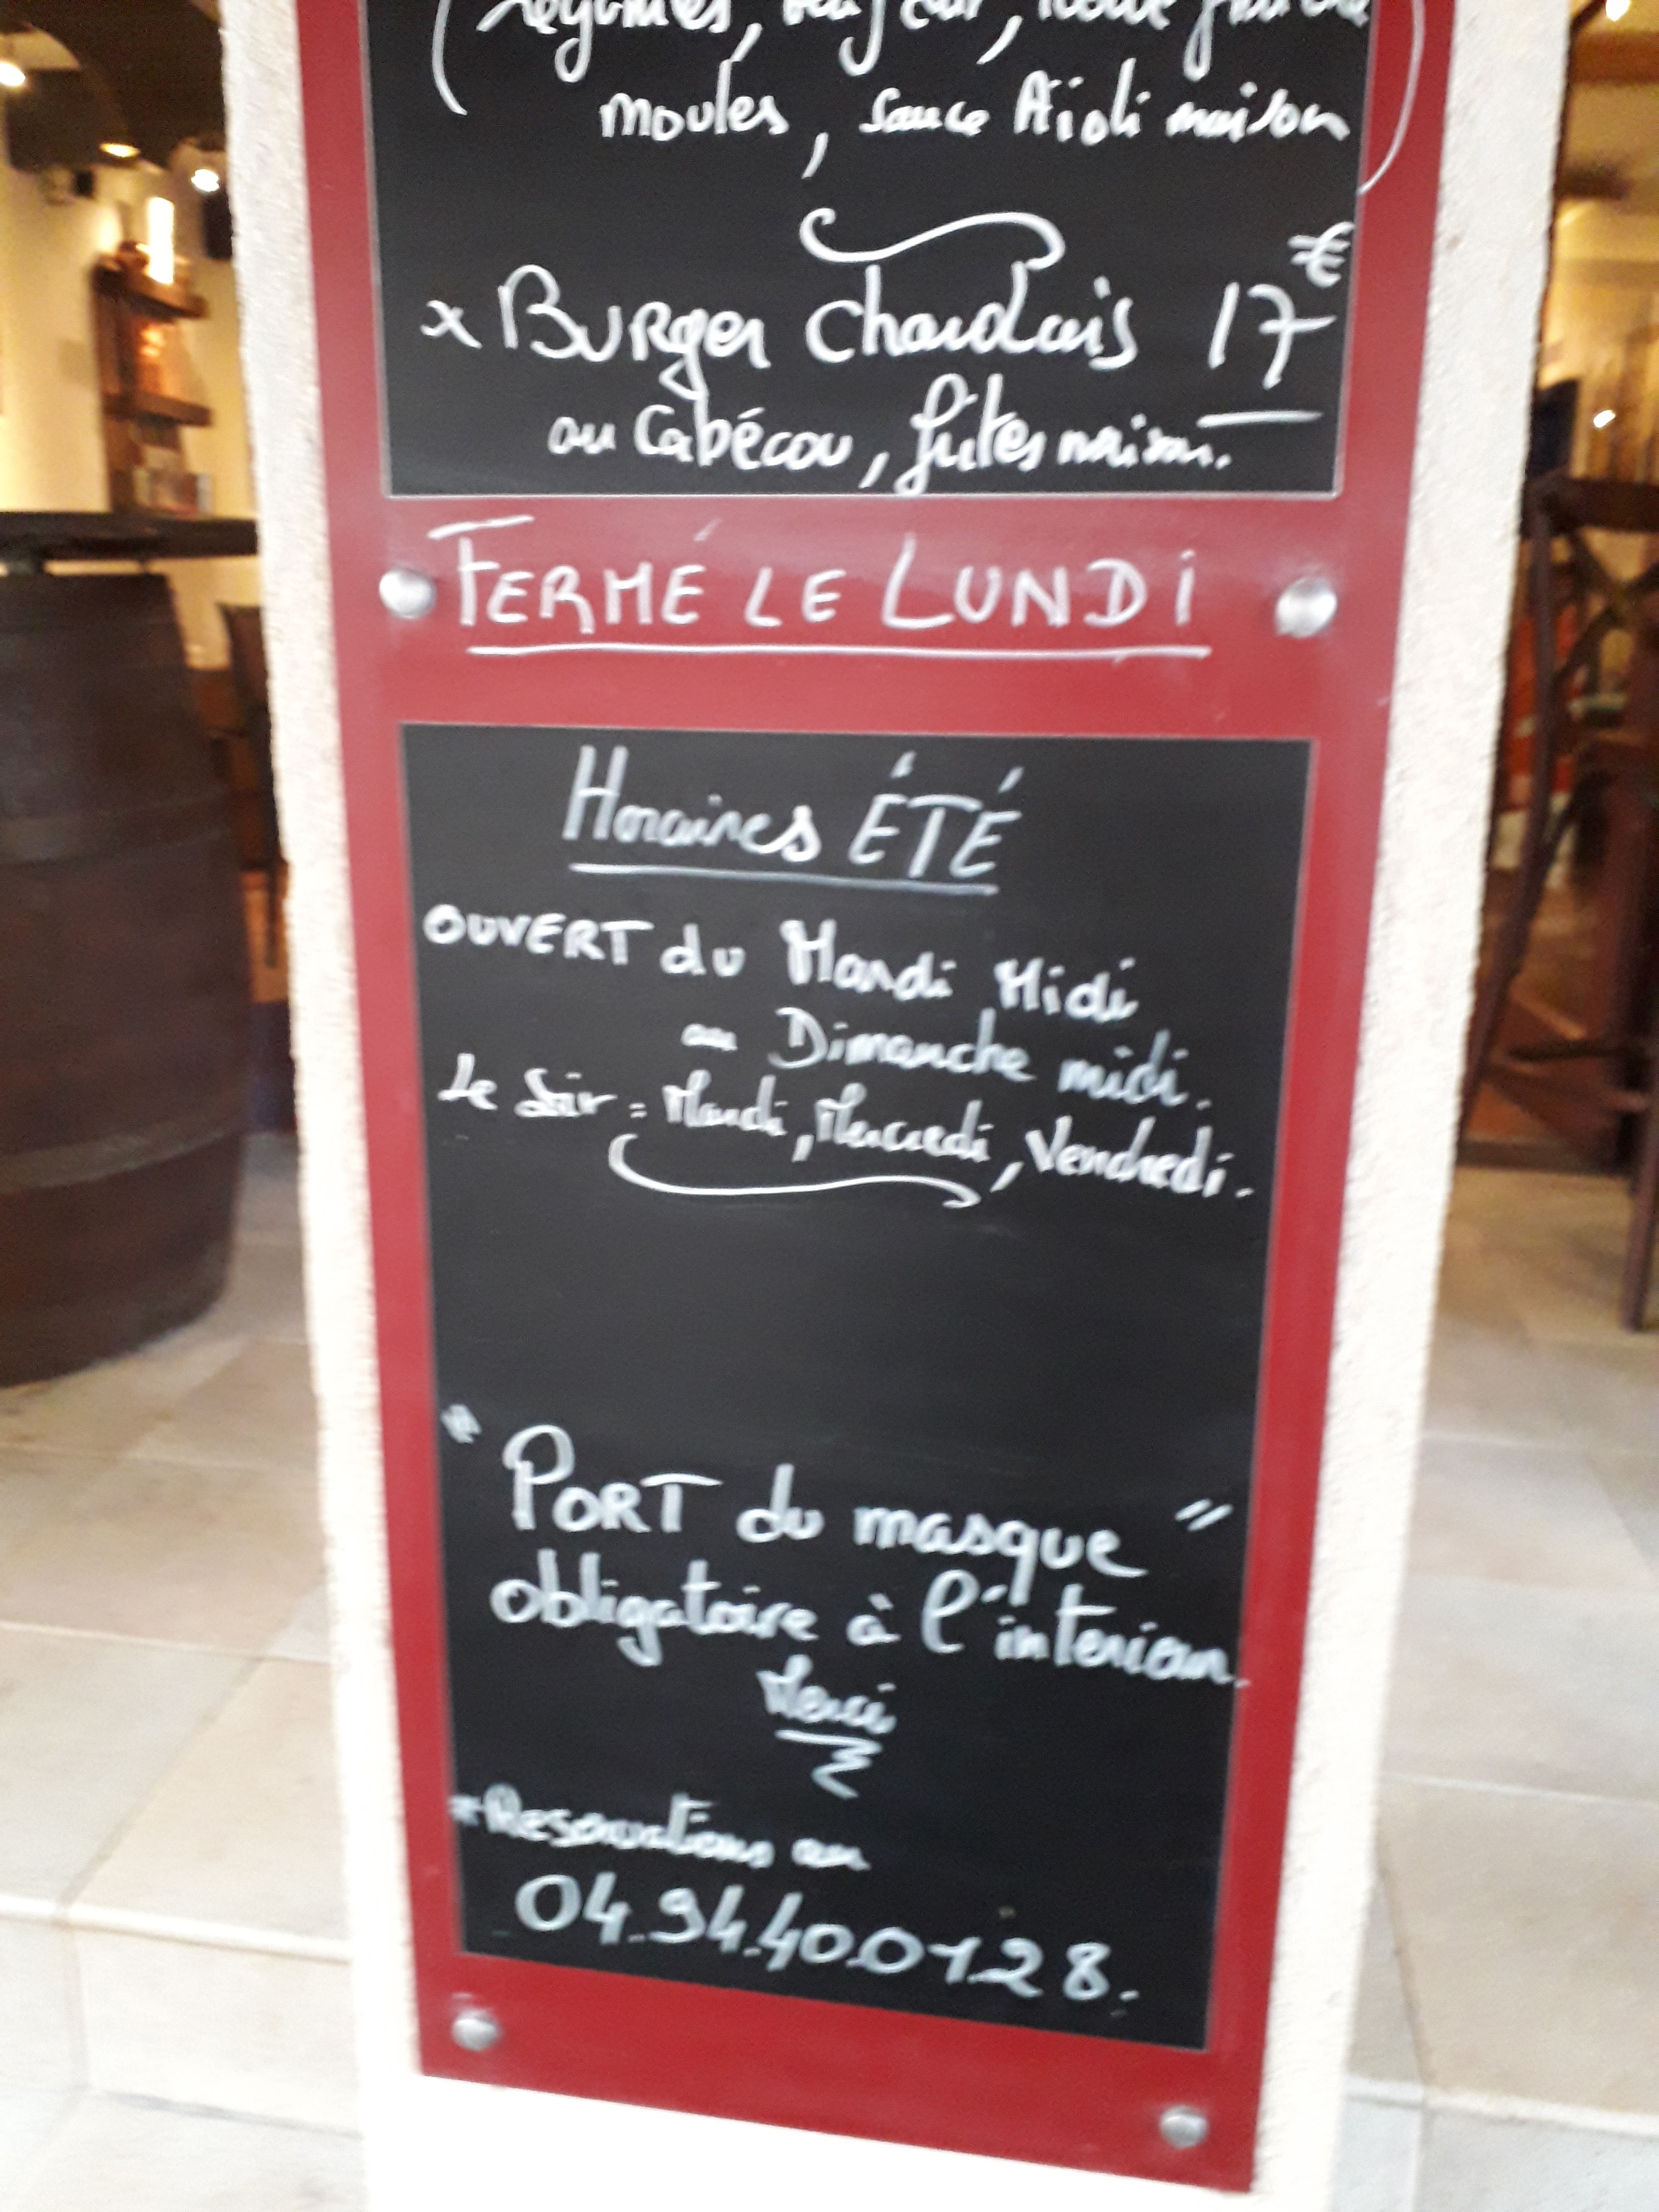 (légumes, œuf dur,
moules, sauce Aïoli maison)
* Burger Charolais 17€
au Cabécou, frites maison.
FERMÉ LE LUNDI
Horaires ÉTÉ
OUVERT du Mardi Midi
au Dimanche midi.
Le Soir = Mardi, Mercredi, Vendredi.
" PORT du masque "
obligatoire à l'interieur.
Merci
* Reservations au
04.94.40.01.28.